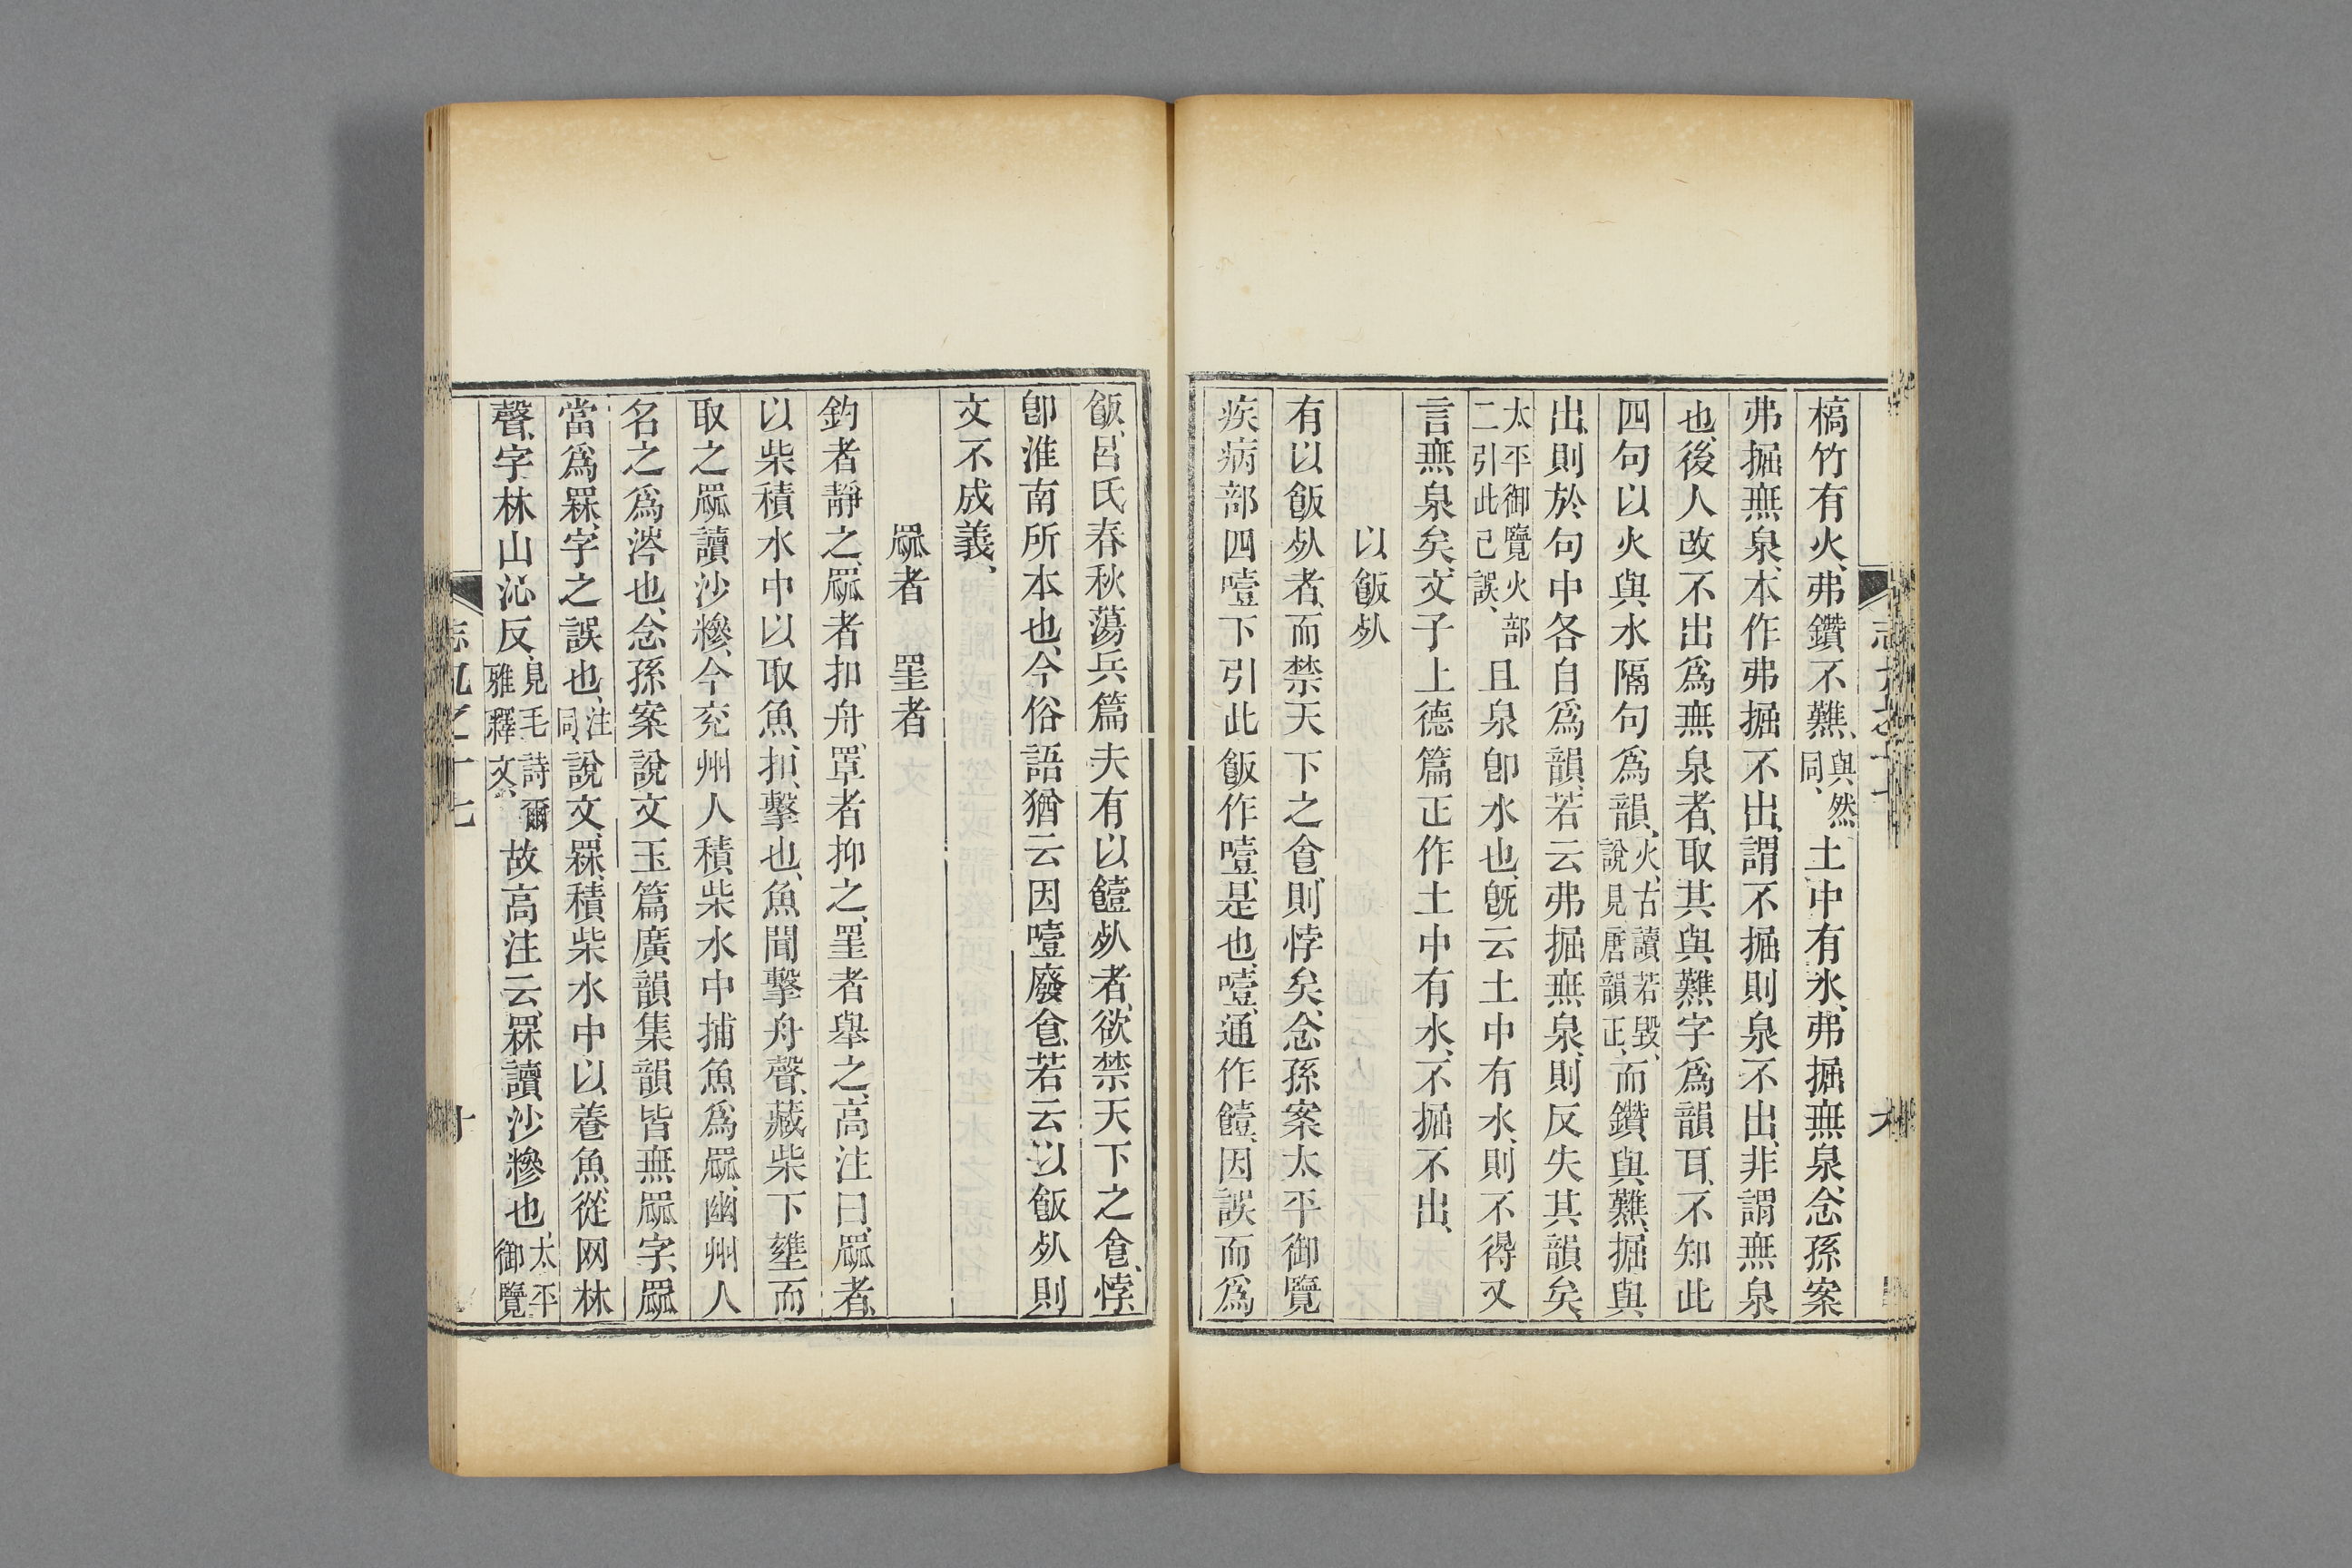 槁竹有火、弗鑽不㸐、與然同、土中有水、弗掘無泉、念孫案
弗掘無泉、本作弗掘不出、謂不掘則泉不出、非謂無泉
也、後人改不出爲無泉者、取其與㸐字爲韻耳、不知此
四句以火與水隔句爲韻、火古讀若毀、說見唐韻正、而鑽與㸐、掘與
出、則於句中各自爲韻、若云弗掘無泉、則反失其韻矣、
太平御覽火部二引此已誤、且泉卽水也、旣云土中有水、則不得又
言無泉矣、文子上德篇正作土中有水、不掘不出、
以飯𣦸
有以飯𣦸者、而禁天下之食、則悖矣、念孫案太平御覽
疾病部四噎下引此飯作噎、是也、噎、通作饐、因誤而爲
飯、呂氏春秋蕩兵篇夫有以饐𣦸者、欲禁天下之食、悖、
卽淮南所本也、今俗語猶云因噎廢食、若云以飯𣦸則
文不成義、
罛者 罣者
釣者靜之、罛者扣舟、罩者抑之、罣者舉之、高注曰、罛者、
以柴積水中以取魚、扣、擊也、魚聞擊舟聲、藏柴下壅而
取之、罛讀沙糝、今兗州人積柴水中捕魚爲罛、幽州人
名之爲涔也、念孫案說文玉篇廣韻集韻皆無罛字、罛
當爲罧、字之誤也、注同、說文、罧、積柴水中以養魚、從网林
聲、字林山沁反、見毛詩爾雅釋文、故高注云、罧讀沙糝也、太平御覽